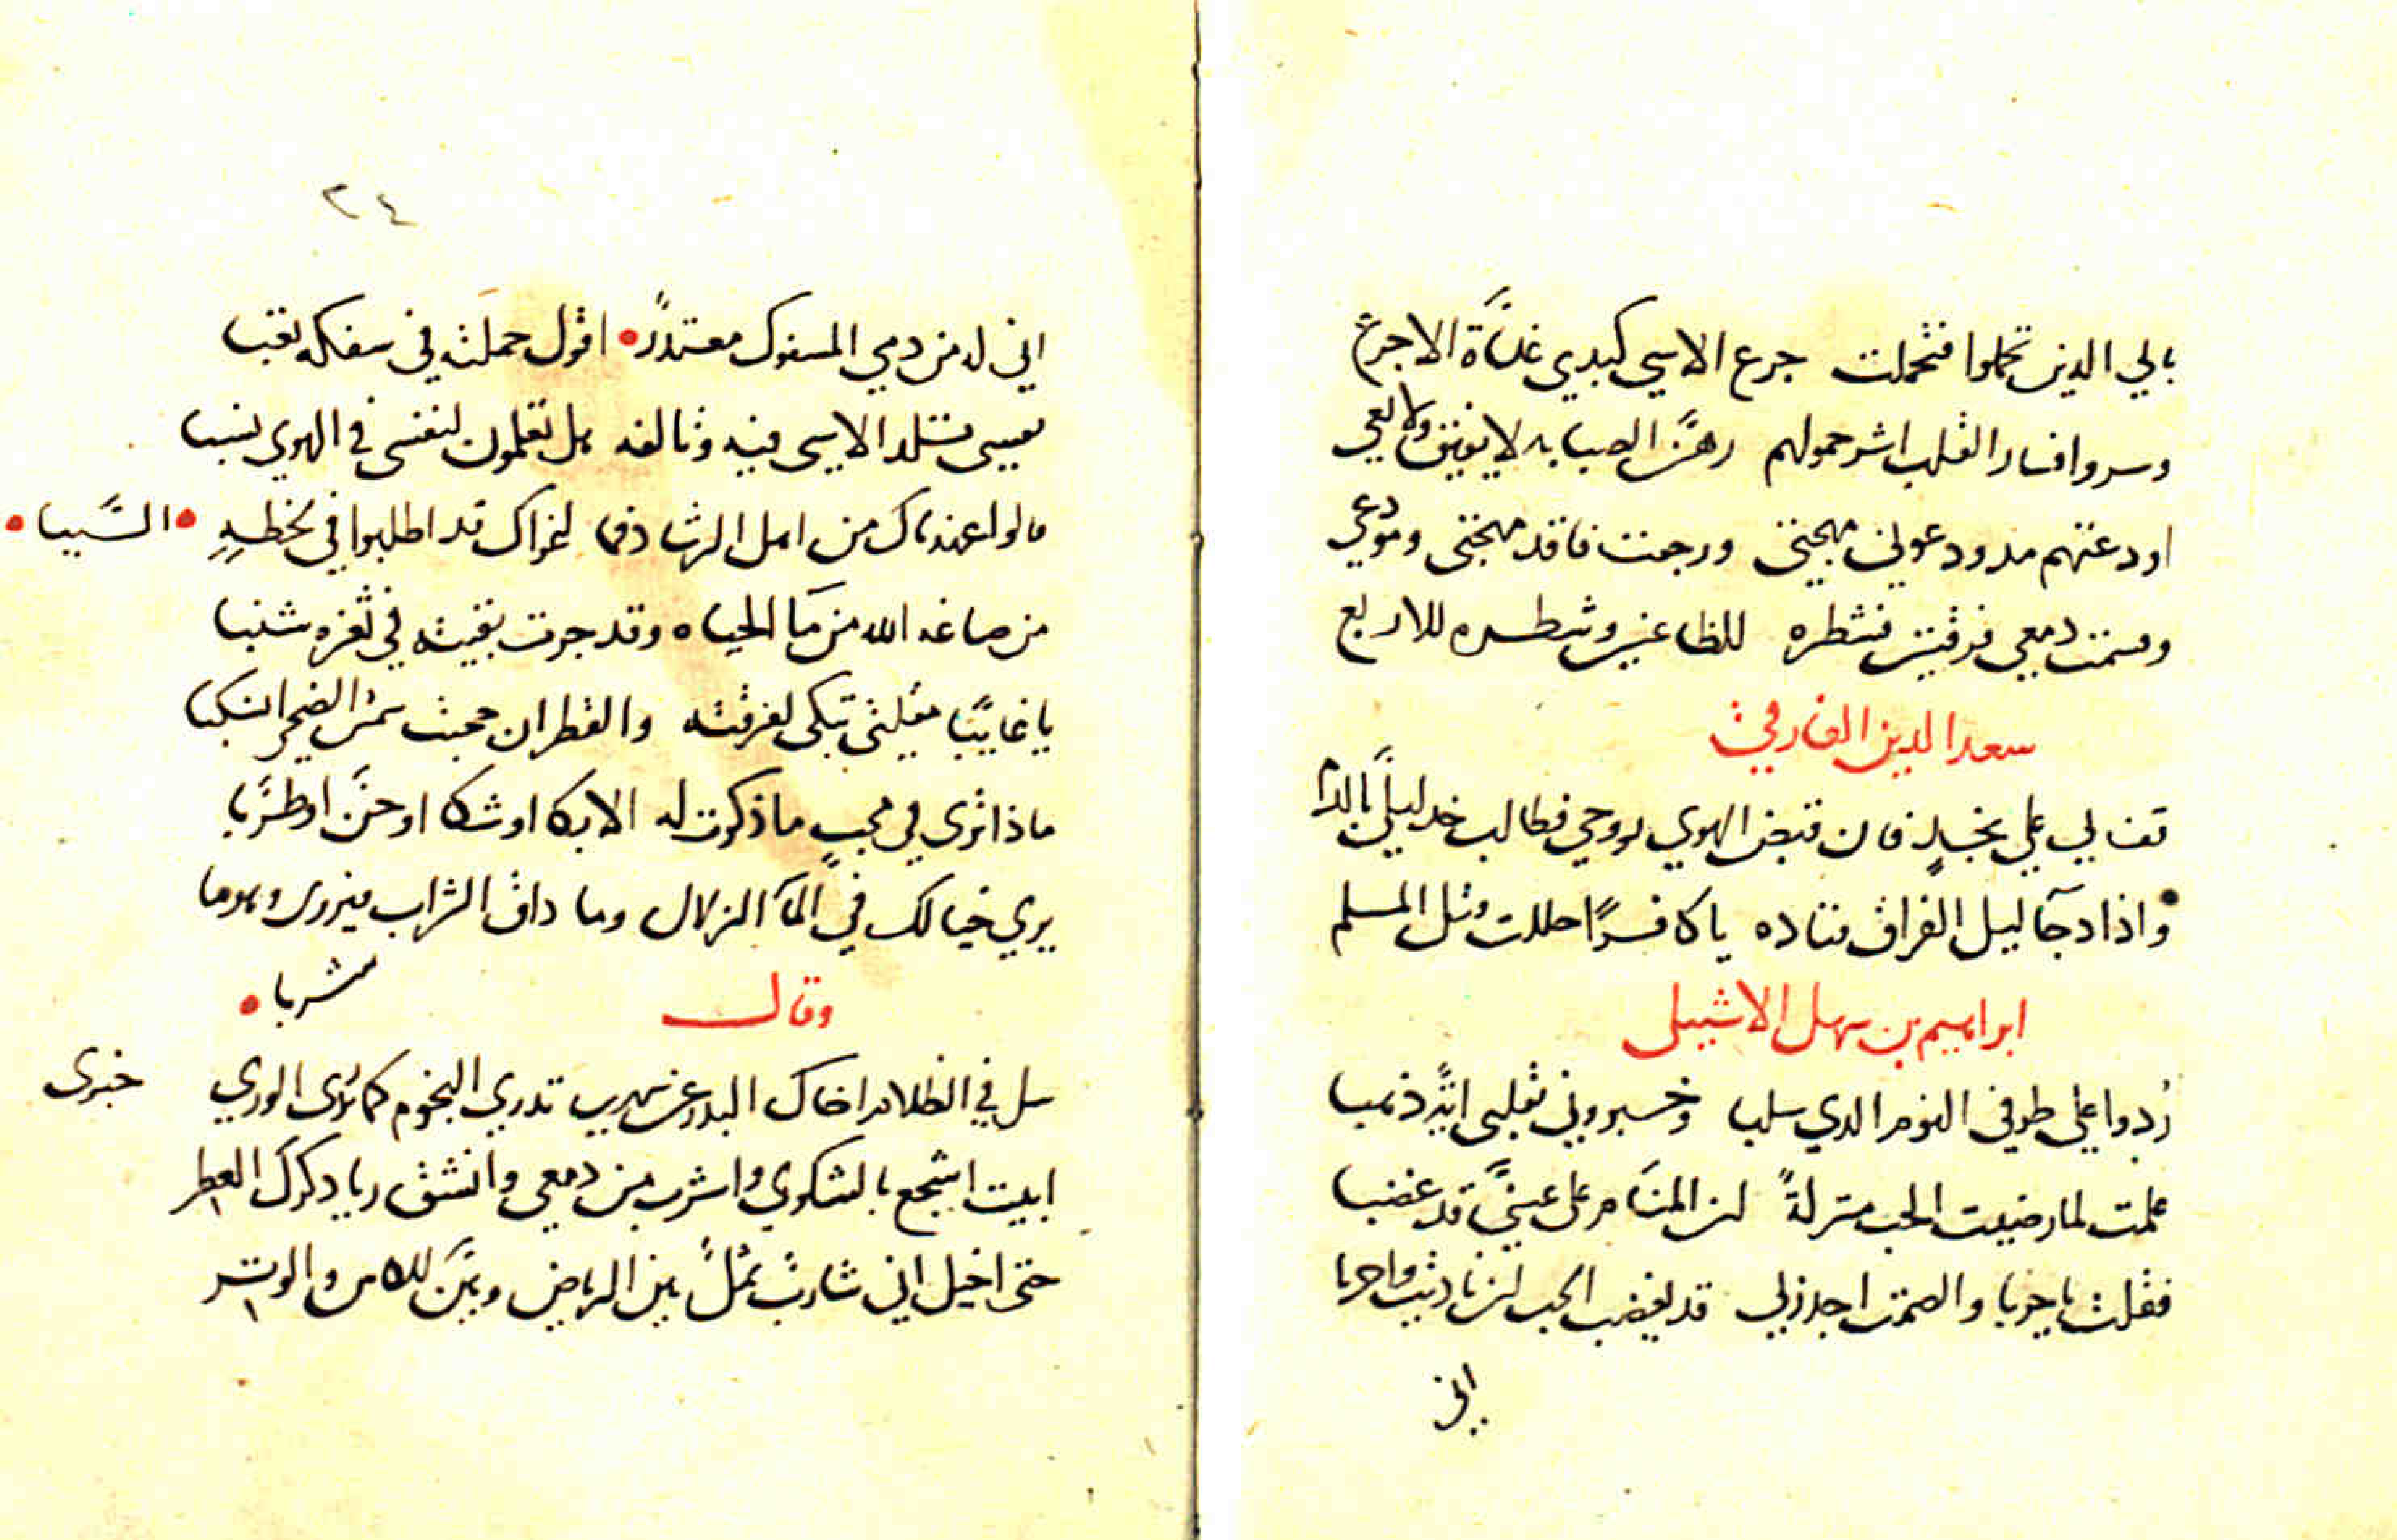 بابي الذين تحملوا فتحملت جرع الاسي كبدي غداة الاجرع
وسروا فسار القلب اثر حمولهم رهن الصبابه لا يفيق ولا يعي
اودعتهم مذ ودعوني مهجتي ورجعت فاقد مهجتي ومودعي
وقسمت دمعي فرقتين فشطره للظاعنين وشطره للاربع
سعد الدين الفارقي
قف لي علي نجد فان قبض الهوي روحي فطالب خد ليلي بالدم
واذا دجا ليل الفراق فناده يا كافرًا حللت قتل المسلم
ابراهيم بن سهل الاشبيلي
ردوا علي طرفي النوم الذي سلبا وخبروني بقلبي اية ذهبا
علمت لما رضيت الحب منزلةً ان المنام على عينيَّ قد غضبا
فقلت يا حربا والصمت اجدر بي قد يغضب الحب ان ناديت واحربا
اني
٢٤
اني له من دمي المسفوك معتذرٌ اقول حملته في سفكه تعبا
نفسي تلذ الاسي فيه وتالفه هل تعلمون لنفسي في الهوي نسبا
قالوا عهدناك من اهل الرشاد فما اغراك قد اطلبوا في لحظه السببا
من صاغه الله من ما الحياه وقد جرت بقيته في ثغره شنبا
يا غايبًا مقلتي تبكي لفرقته والقطر ان حجبت شمس الضحي انسكبا
ماذا ترى في محبٍ ما ذكرت له الا بكا او شكا او حنَّ او طربا
يري خيالك في المآ الزلال وما ذاق الشراب فيروى وهو ما
شربا
وقال
سل في الظلام اخاك البدر عن سهري تدري النجوم كما تدرى الوري خبرى
ابيت اشجع بالشكوي واشرب من دمعي وانشق ريا ذكرك العطر
حتى اخيل اني شاربٌ ثملٌ بين الرياض وبين الكاس والوتر